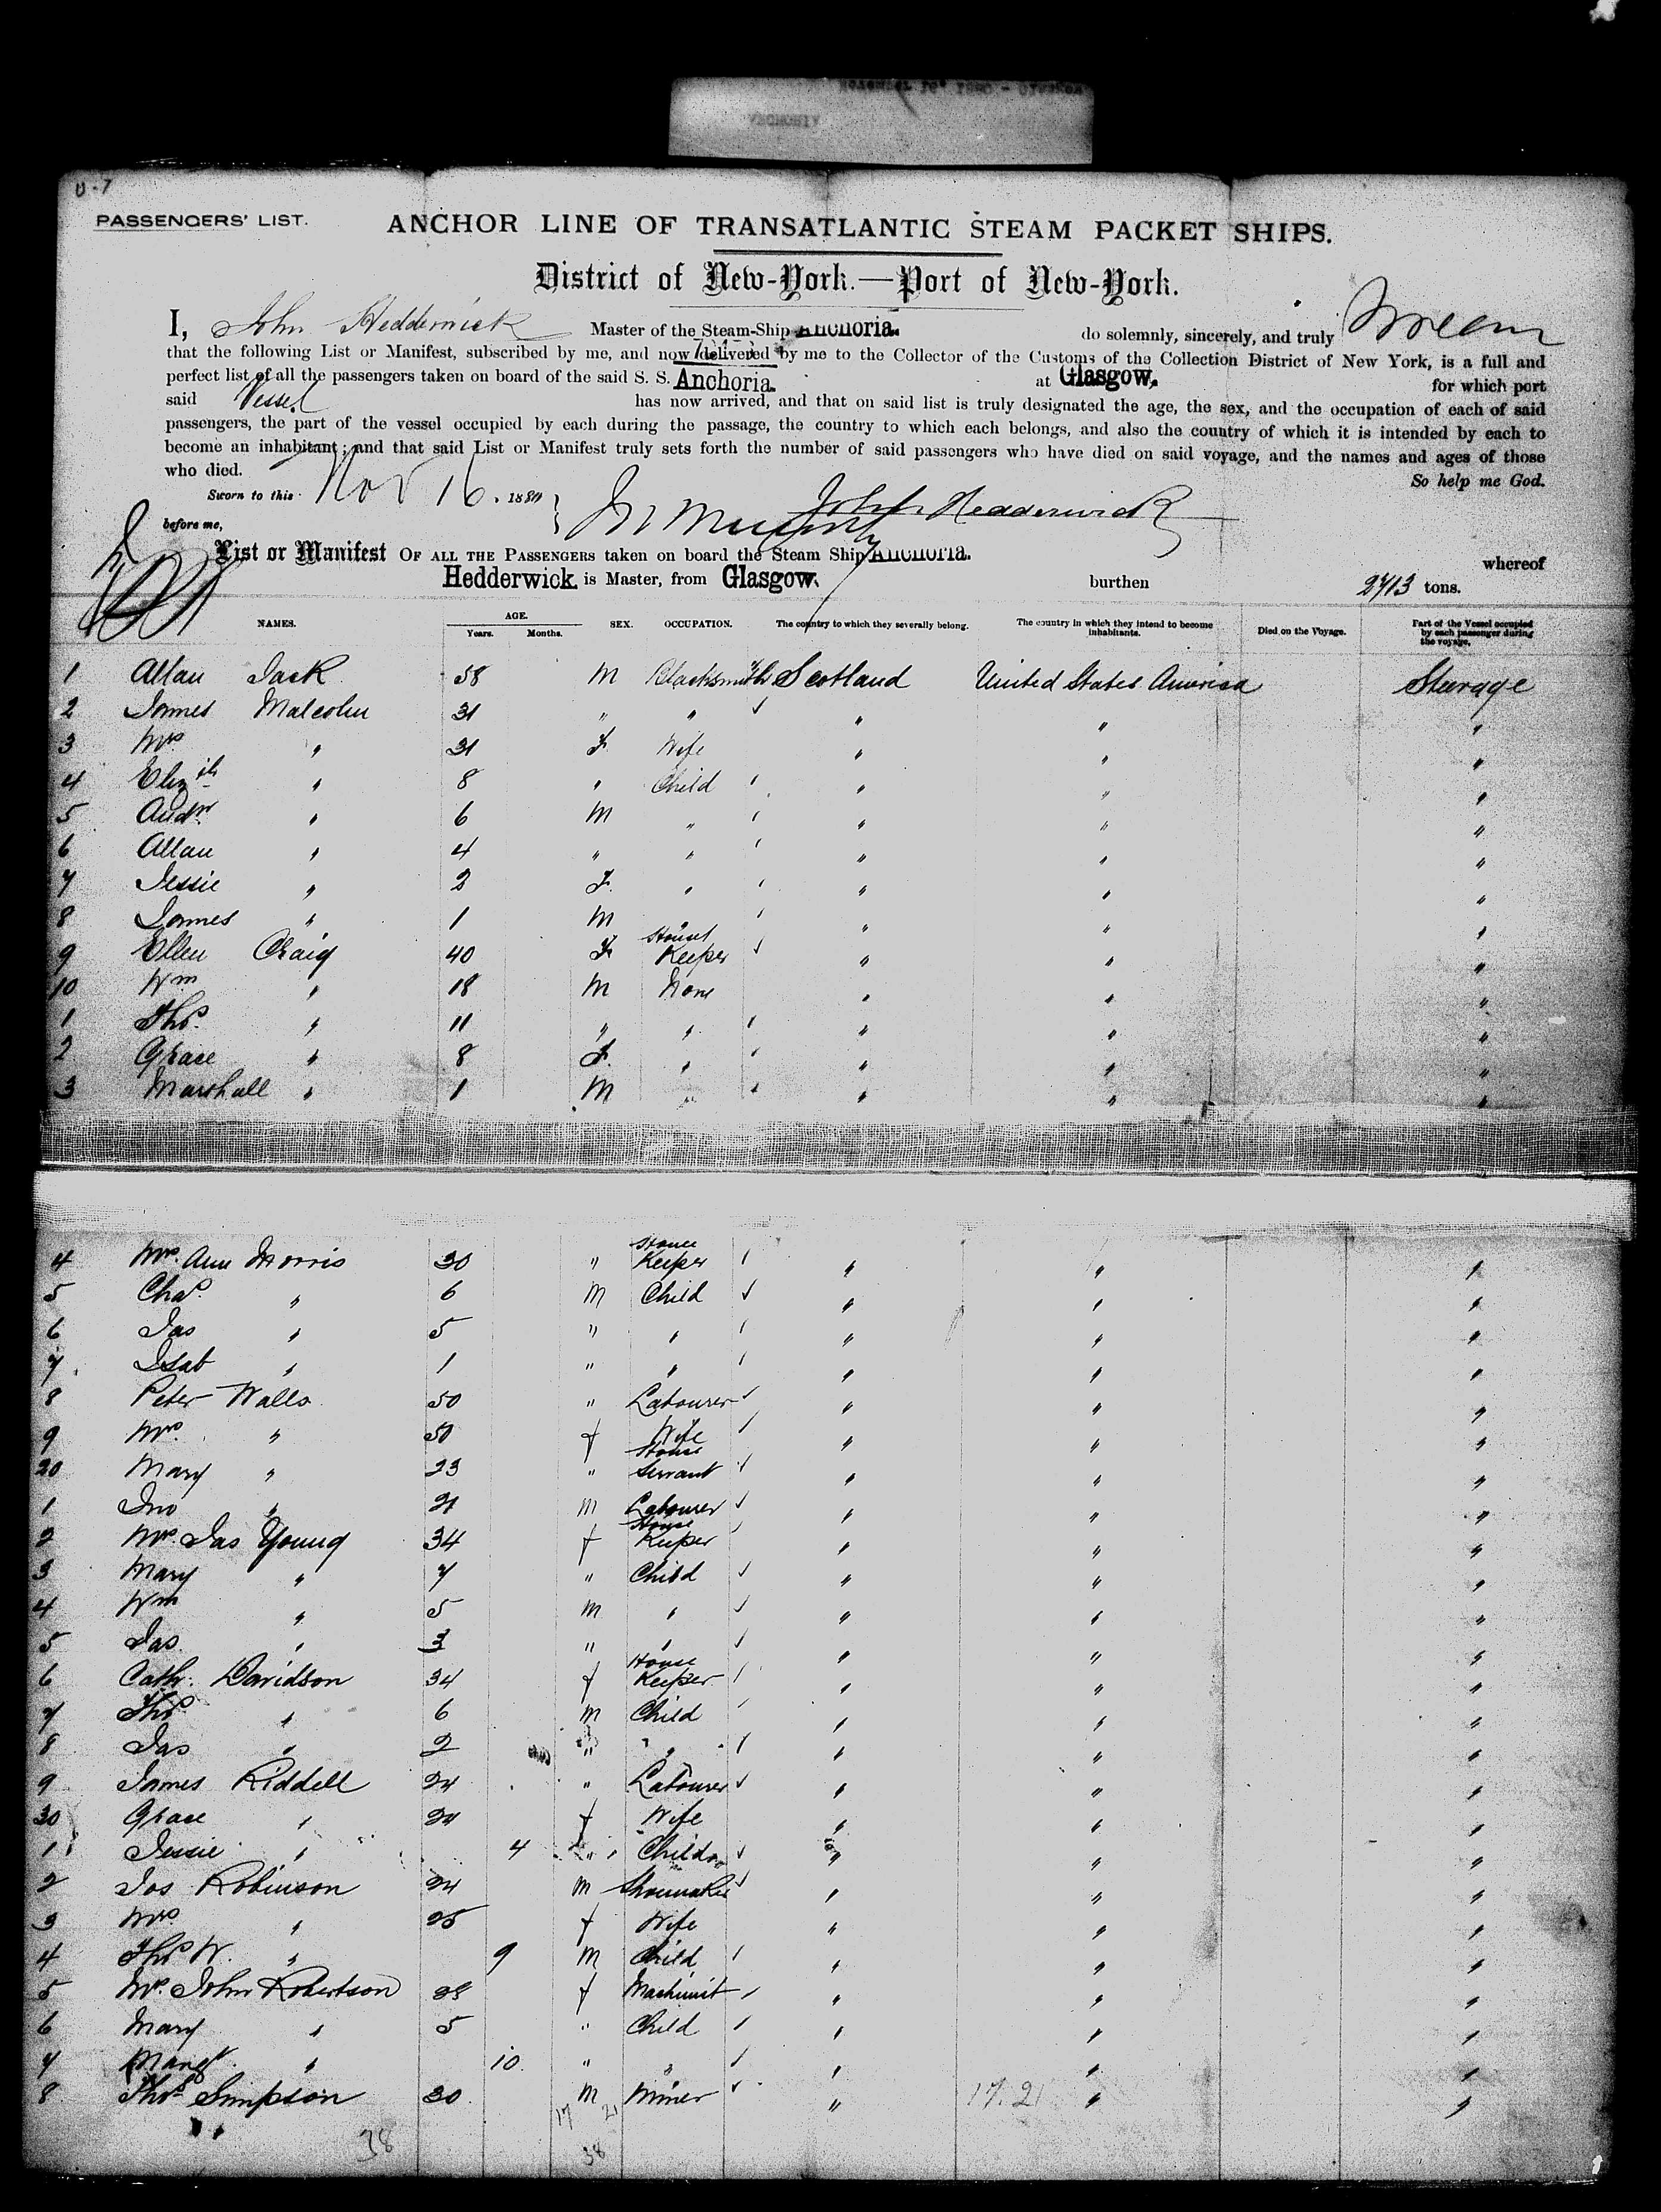 U-7
PASSENGERS' LIST. ANCHOR LINE OF TRANSATLANTIC STEAM PACKET SHIPS.
District of New-York.—Port of New-York.
I, John Hedderwick Master of the Steam-Ship Anchoria. do solemnly, sincerely, and truly Swear
that the following List or Manifest, subscribed by me, and now delivered by me to the Collector of the Customs of the Collection District of New York, is a full and
perfect list of all the passengers taken on board of the said S. S. Anchoria. at Glasgow. for which port
said Vessel has now arrived, and that on said list is truly designated the age, the sex, and the occupation of each of said
passengers, the part of the vessel occupied by each during the passage, the country to which each belongs, and also the country of which it is intended by each to
become an inhabitant; and that said List or Manifest truly sets forth the number of said passengers who have died on said voyage, and the names and ages of those
who died. So help me God.
Sworn to this Nov 16. 1880 John Hedderwick
before me,
List or Manifest OF ALL THE PASSENGERS taken on board the Steam Ship Anchoria. whereof
Hedderwick is Master, from Glasgow. burthen 2713 tons.
NAMES. AGE. Years. Months. SEX. OCCUPATION. The country to which they severally belong. The country in which they intend to become inhabitants. Died on the Voyage. Part of the Vessel occupied by each passenger during the voyage.
1 Allan Jack 58 M Blacksmith Scotland United States America Sturage
2 James Malcolm 31 " " " " "
3 Mrs " 31 F Wife " " "
4 Elizth " 8 " Child " " "
5 Andw " 6 M " " " "
6 Allan " 4 " " " " "
7 Jessie " 2 F. " " " "
8 James " 1 M " " " "
9 Ellen Craig 40 F House Keeper " " "
10 Wm " 18 M None " " "
1 Thos. " 11 " " " " "
2 Grace " 8 F. " " " "
3 Marshall " 1 M " " " "
4 Mrs. Ann Morris 30 " House Keeper " " "
5 Chas. " 6 M Child " " "
6 Jas " 5 " " " " "
7 Isab " 1 " " " " "
8 Peter Walls 50 " Labourer " " "
9 Mrs. " 50 f Wife " " "
20 Mary " 23 " House Servant " " "
1 Jno " 21 M Labourer " " "
2 Mrs. Jas Young 34 f House Keeper " " "
3 Mary " 7 " Child " " "
4 Wm " 5 M " " " "
5 Jas. " 3 " " " " "
6 Cathr. Davidson 34 f House Keeper " " "
7 Thos " 6 M Child " " "
8 Jas " 2 " " " " "
9 James Riddell 24 " Labourer " " "
30 Grace " 24 f Wife " " "
1 Jessie " 4 " Child " " "
2 Jos Robinson 24 M Shoemaker " " "
3 Mrs " 25 f Wife " " "
4 Thos W. " 9 M Child " " "
5 Mrs. John Robertson 28 f Machinist " " "
6 Mary " 5 " Child " " "
7 Margt. " 10. " " " " "
8 Thos. Simpson 30 M Miner " 17.21 " "
17 21
38 38